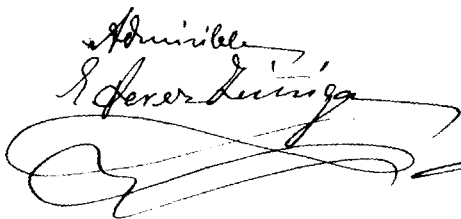 Admisible
E Perez Zúñiga